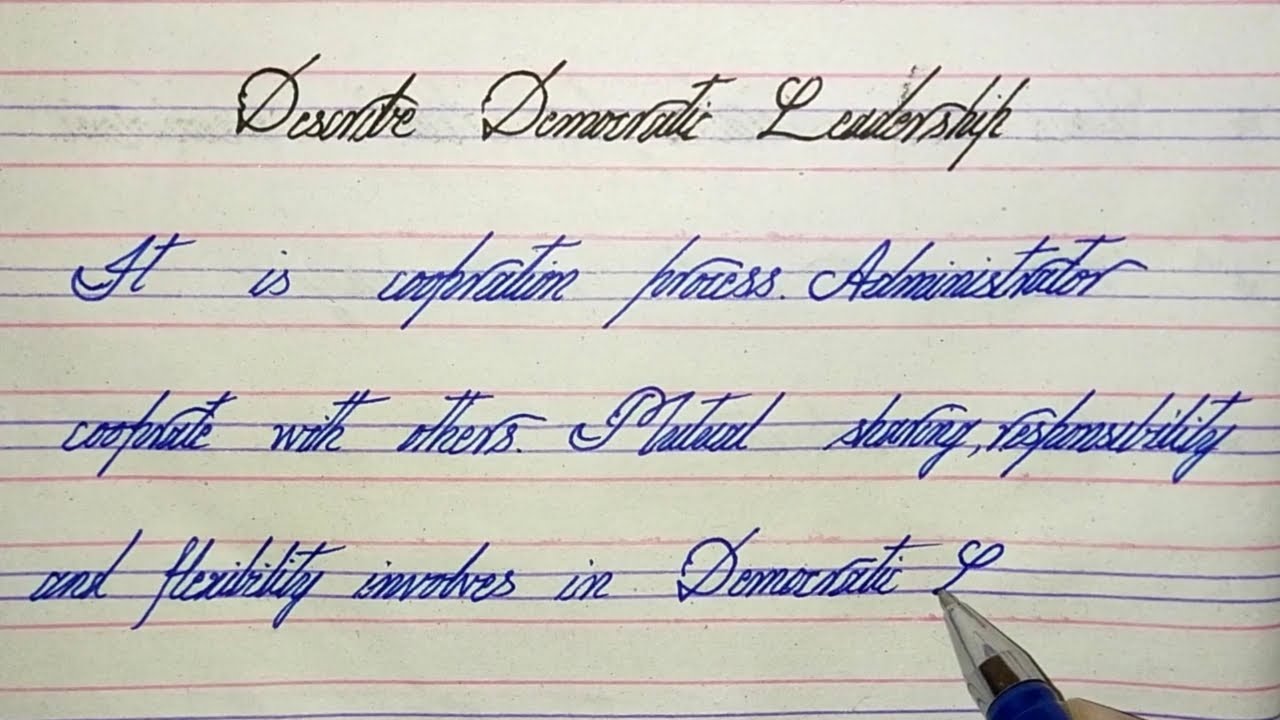 Describe Democratic Leadership
It is coopration process. Administrator
cooprate with others. Mutual sharing, responsibility
and flexibility involves in Democratic L